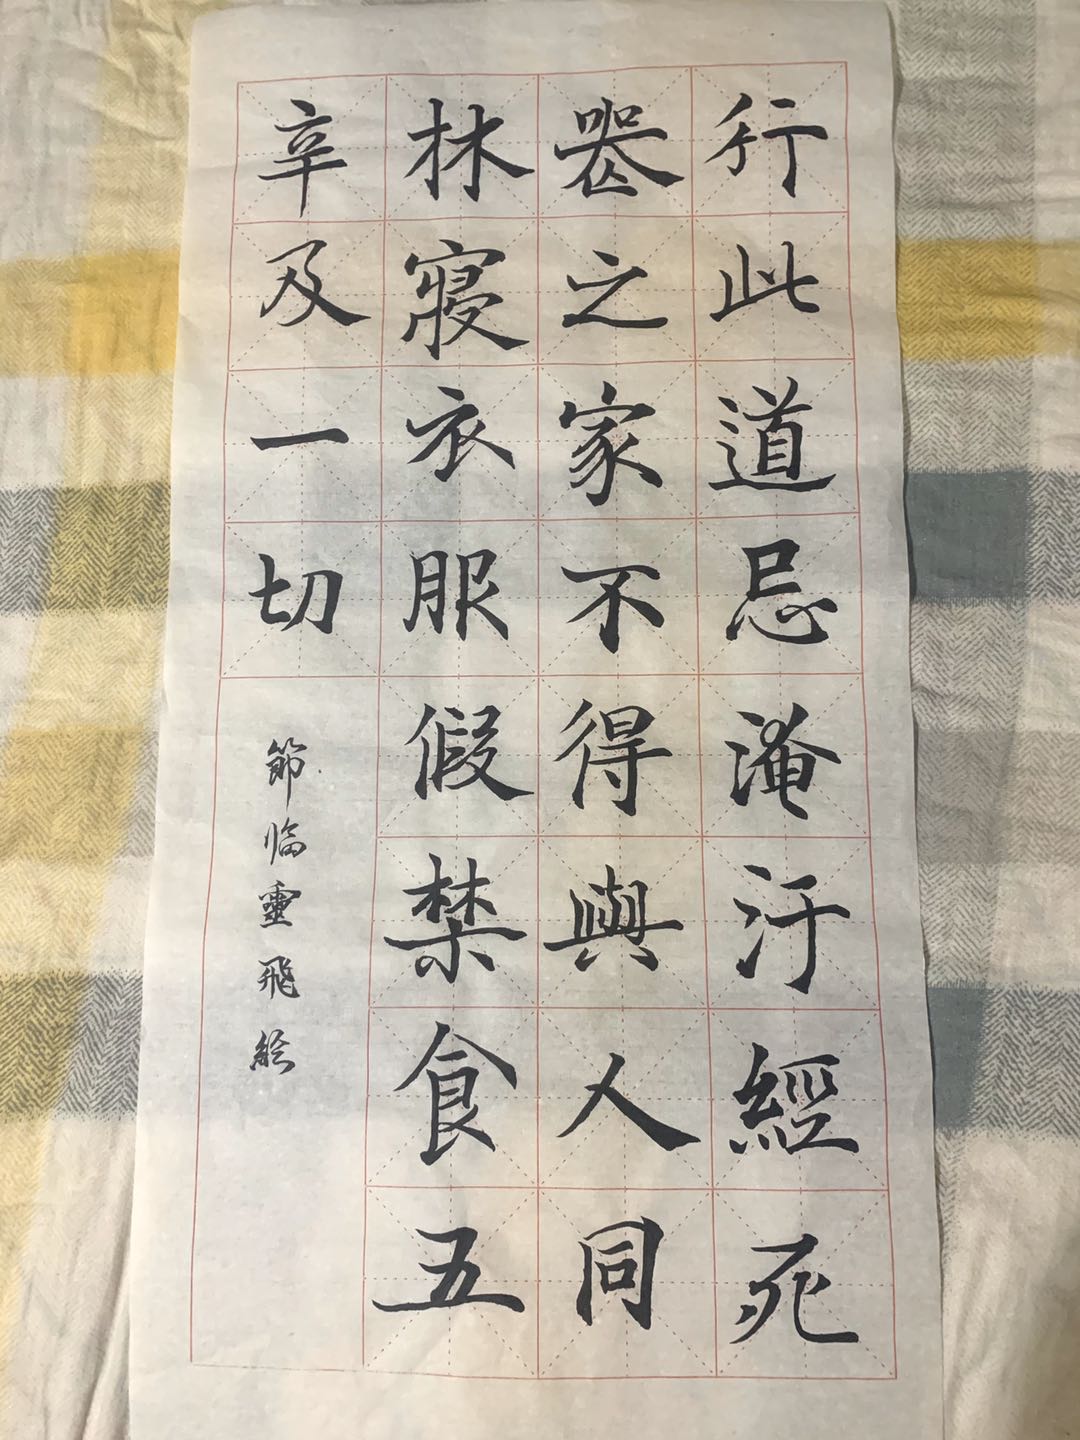 行此道忌淹汙經死
喪之家不得與人同
林寢衣服假禁食五
辛及一切
節临靈飛経